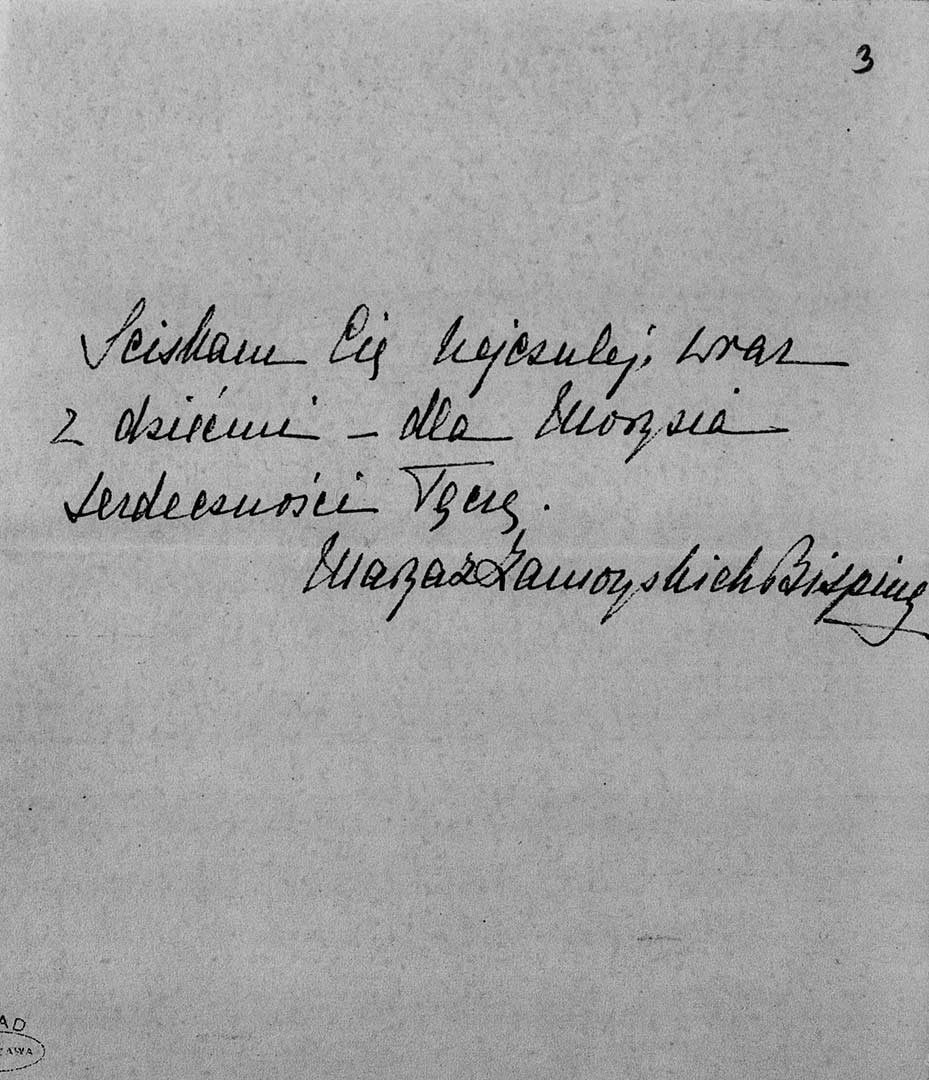 3
Sciskam Cię najczulej, wraz
z dziećmi – dla Morysia
serdeczności łączę.
Marya z Zamoyskich Bisping
AD
ZAWA